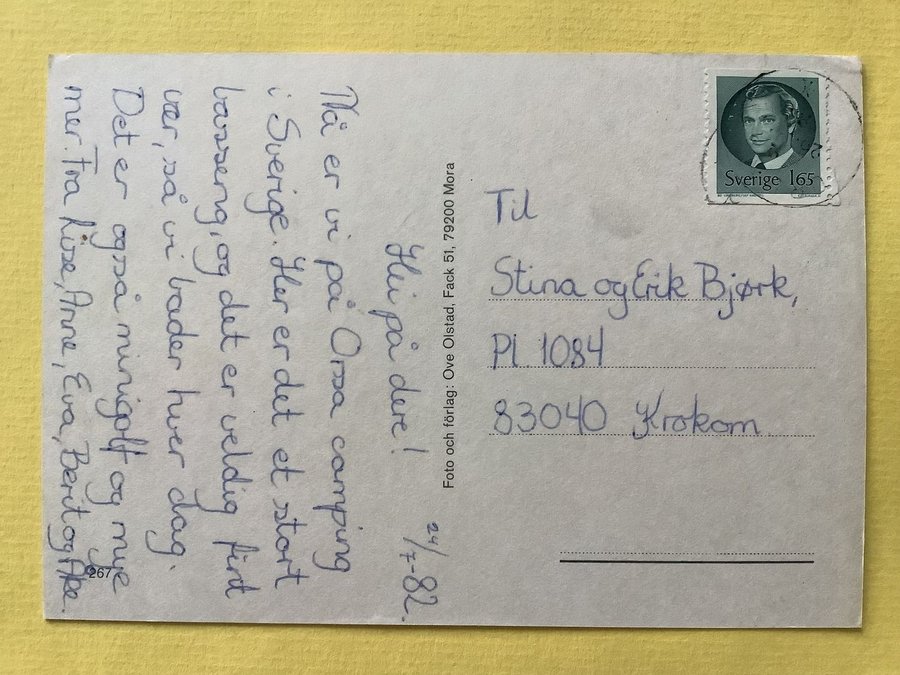 24/7-82.
Hei på dere!
Nå er vi på Orsa camping
i Sverige. Her er det et stort
basseng, og det er veldig fint
vær, så vi bader hver dag.
Det er også minigolf og mye
mer. Fra Lise, Anne, Eva, Berit og Åse.
267
Foto och förlag: Ove Olstad, Fack 51, 79200 Mora
Sverige 165
Til
Stina og Erik Bjørk,
Pl. 1084
83040 Krokom